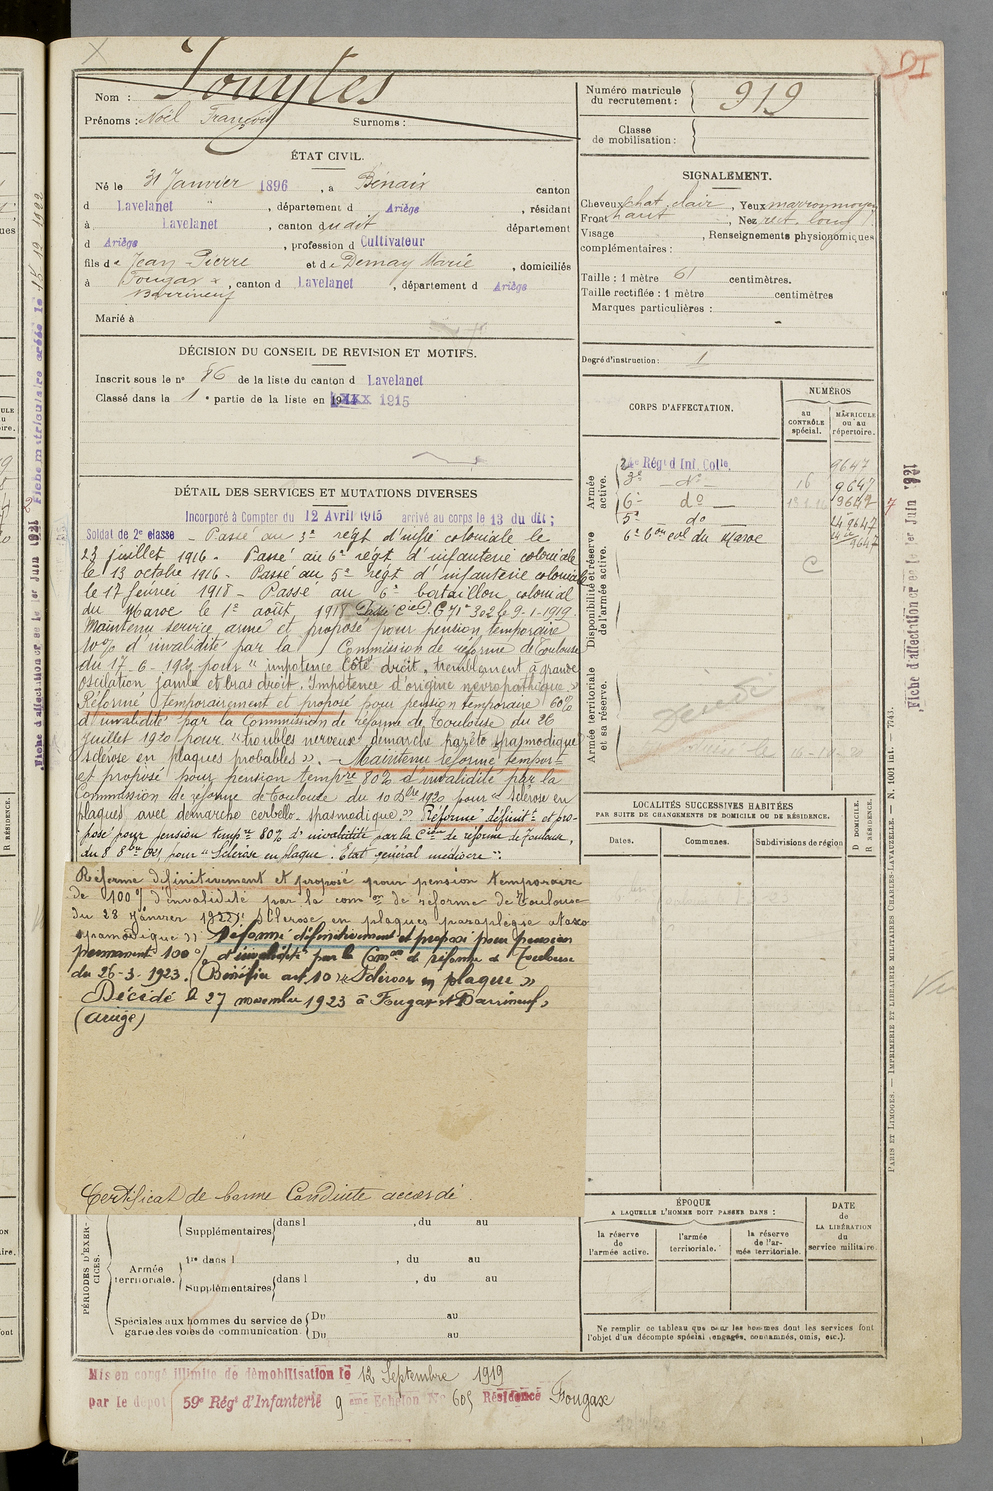 Nom :
Prénoms : Noël François Surnoms :
Numéro matricule du recrutement : 919
Classe de mobilisation :
ÉTAT CIVIL.
Né le 31 Janvier 1896, à Bénaix canton
d Lavelanet, département d Ariège, résidant
à Lavelanet, canton dudit département
d Ariège, profession d Cultivateur
fils de Jean Pierre et de Demay Marie, domiciliés
à Fougax &, canton d Lavelanet, département d Ariège
Barrineuf
Marié à
SIGNALEMENT.
Cheveux chat. clair, Yeux marron moyen
Front haut, Nez rect. long
Visage , Renseignements physionomiques
complémentaires :
Taille : 1 mètre 61 centimètres.
Taille rectifiée : 1 mètre centimètres
Marques particulières :
Degré d'instruction : 1
DÉCISION DU CONSEIL DE REVISION ET MOTIFS.
Inscrit sous le n° 86 de la liste du canton d Lavelanet
Classé dans la 1e partie de la liste en 1915
CORPS D'AFFECTATION.
NUMÉROS
au CONTRÔLE spécial.
MATRICULE ou au répertoire.
Armée active.
24e Régt d Inf. Colle. 9647
3e do 16 9647
6e do 9647
5e do 9647
6e Bon col du Maroc 9647
C
Disponibilité et réserve de l'armée active.
Armée territoriale et sa réserve.
DÉTAIL DES SERVICES ET MUTATIONS DIVERSES
Incorporé à Compter du 12 Avril 1915 arrivé au corps le 13 du dit ;
Soldat de 2e classe - Passé au 3e régt d'infie coloniale le
23 juillet 1916 - Passé au 6e régt d'infanterie coloniale
le 13 octobre 1916 - Passé au 5e régt d'infanterie coloniale
le 17 février 1918 - Passé au 6e bataillon colonial
du Maroc le 1er août 1918 302 le 9-1-1919
Maintenu service armé et proposé pour pension temporaire
10% d'invalidité par la Commission de réforme de Toulouse
du 17-6-1920 pour "impotence côté droit, tremblement à grande
oscilation jambe et bras droit. Impotence d'origine névropathique"
Réformé temporairement et proposé pour pension temporaire 60%
d'invalidité par la Commission de réforme de Toulouse du 26
juillet 1920 pour "troubles nerveux démarche paréto spasmodique
sclérose en plaques probables". - Maintenu réformé temport
et proposé pour pension tempre 80% d'invalidité par la
Commission de réforme de Toulouse du 10 Dbre 1920 pour "Sclérose en
plaques avec démarche cerbello-spasmodique" Réformé définitt et pro-
posé pour pension tempre 80% d'invalidité par la Cion de réforme de Toulouse,
du 8 8bre 1921 pour "Sclérose en plaque. Etat général médiocre".
Réformé définitivement et proposé pour pension temporaire
de 100% d'invalidité par la comon de réforme de Toulouse
du 28 Janvier 1922 "Sclérose en plaques paraplégie ataxo
spamodique" Réformé définitivement et proposé pour pension
permanent 100% d'invalidité par la Comon de réforme de Toulouse
du 26-3-1923. (Bénéficie art. 10 "Sclérose en plaque"
Décédé le 27 novembre 1923 à Fougax et Barrineuf,
(Ariège)
Certificat de bonne Conduite accordé.
LOCALITÉS SUCCESSIVES HABITÉES
PAR SUITE DE CHANGEMENTS DE DOMICILE OU DE RÉSIDENCE.
Dates. Communes. Subdivisions de région D DOMICILE. R RÉSIDENCE.
ÉPOQUE
A LAQUELLE L'HOMME DOIT PASSER DANS :
la réserve de l'armée active. l'armée territoriale. la réserve de l'armée territoriale.
DATE de LA LIBÉRATION du service militaire.
Ne remplir ce tableau que pour les hommes dont les services font
l'objet d'un décompte spécial (engagés, condamnés, omis, etc.).
PÉRIODES D'EXERCICES.
Supplémentaires dans l , du au
Armée territoriale. 1re dans l , du au
Supplémentaires dans l , du au
Spéciales aux hommes du service de garde des voies de communication
Du au
Du au
Mis en congé illimité de démobilisation le 12 Septembre 1919
par le dépôt 59e Régt d'Infanterie 9 ème Echelon N° 605 Résidence Fougax
Fiche d'affectation créée le 1er Juin 1921
PARIS ET LIMOGES. — IMPRIMERIE ET LIBRAIRIE MILITAIRES CHARLES-LAVAUZELLE. — N. 1001 int. — 7743.